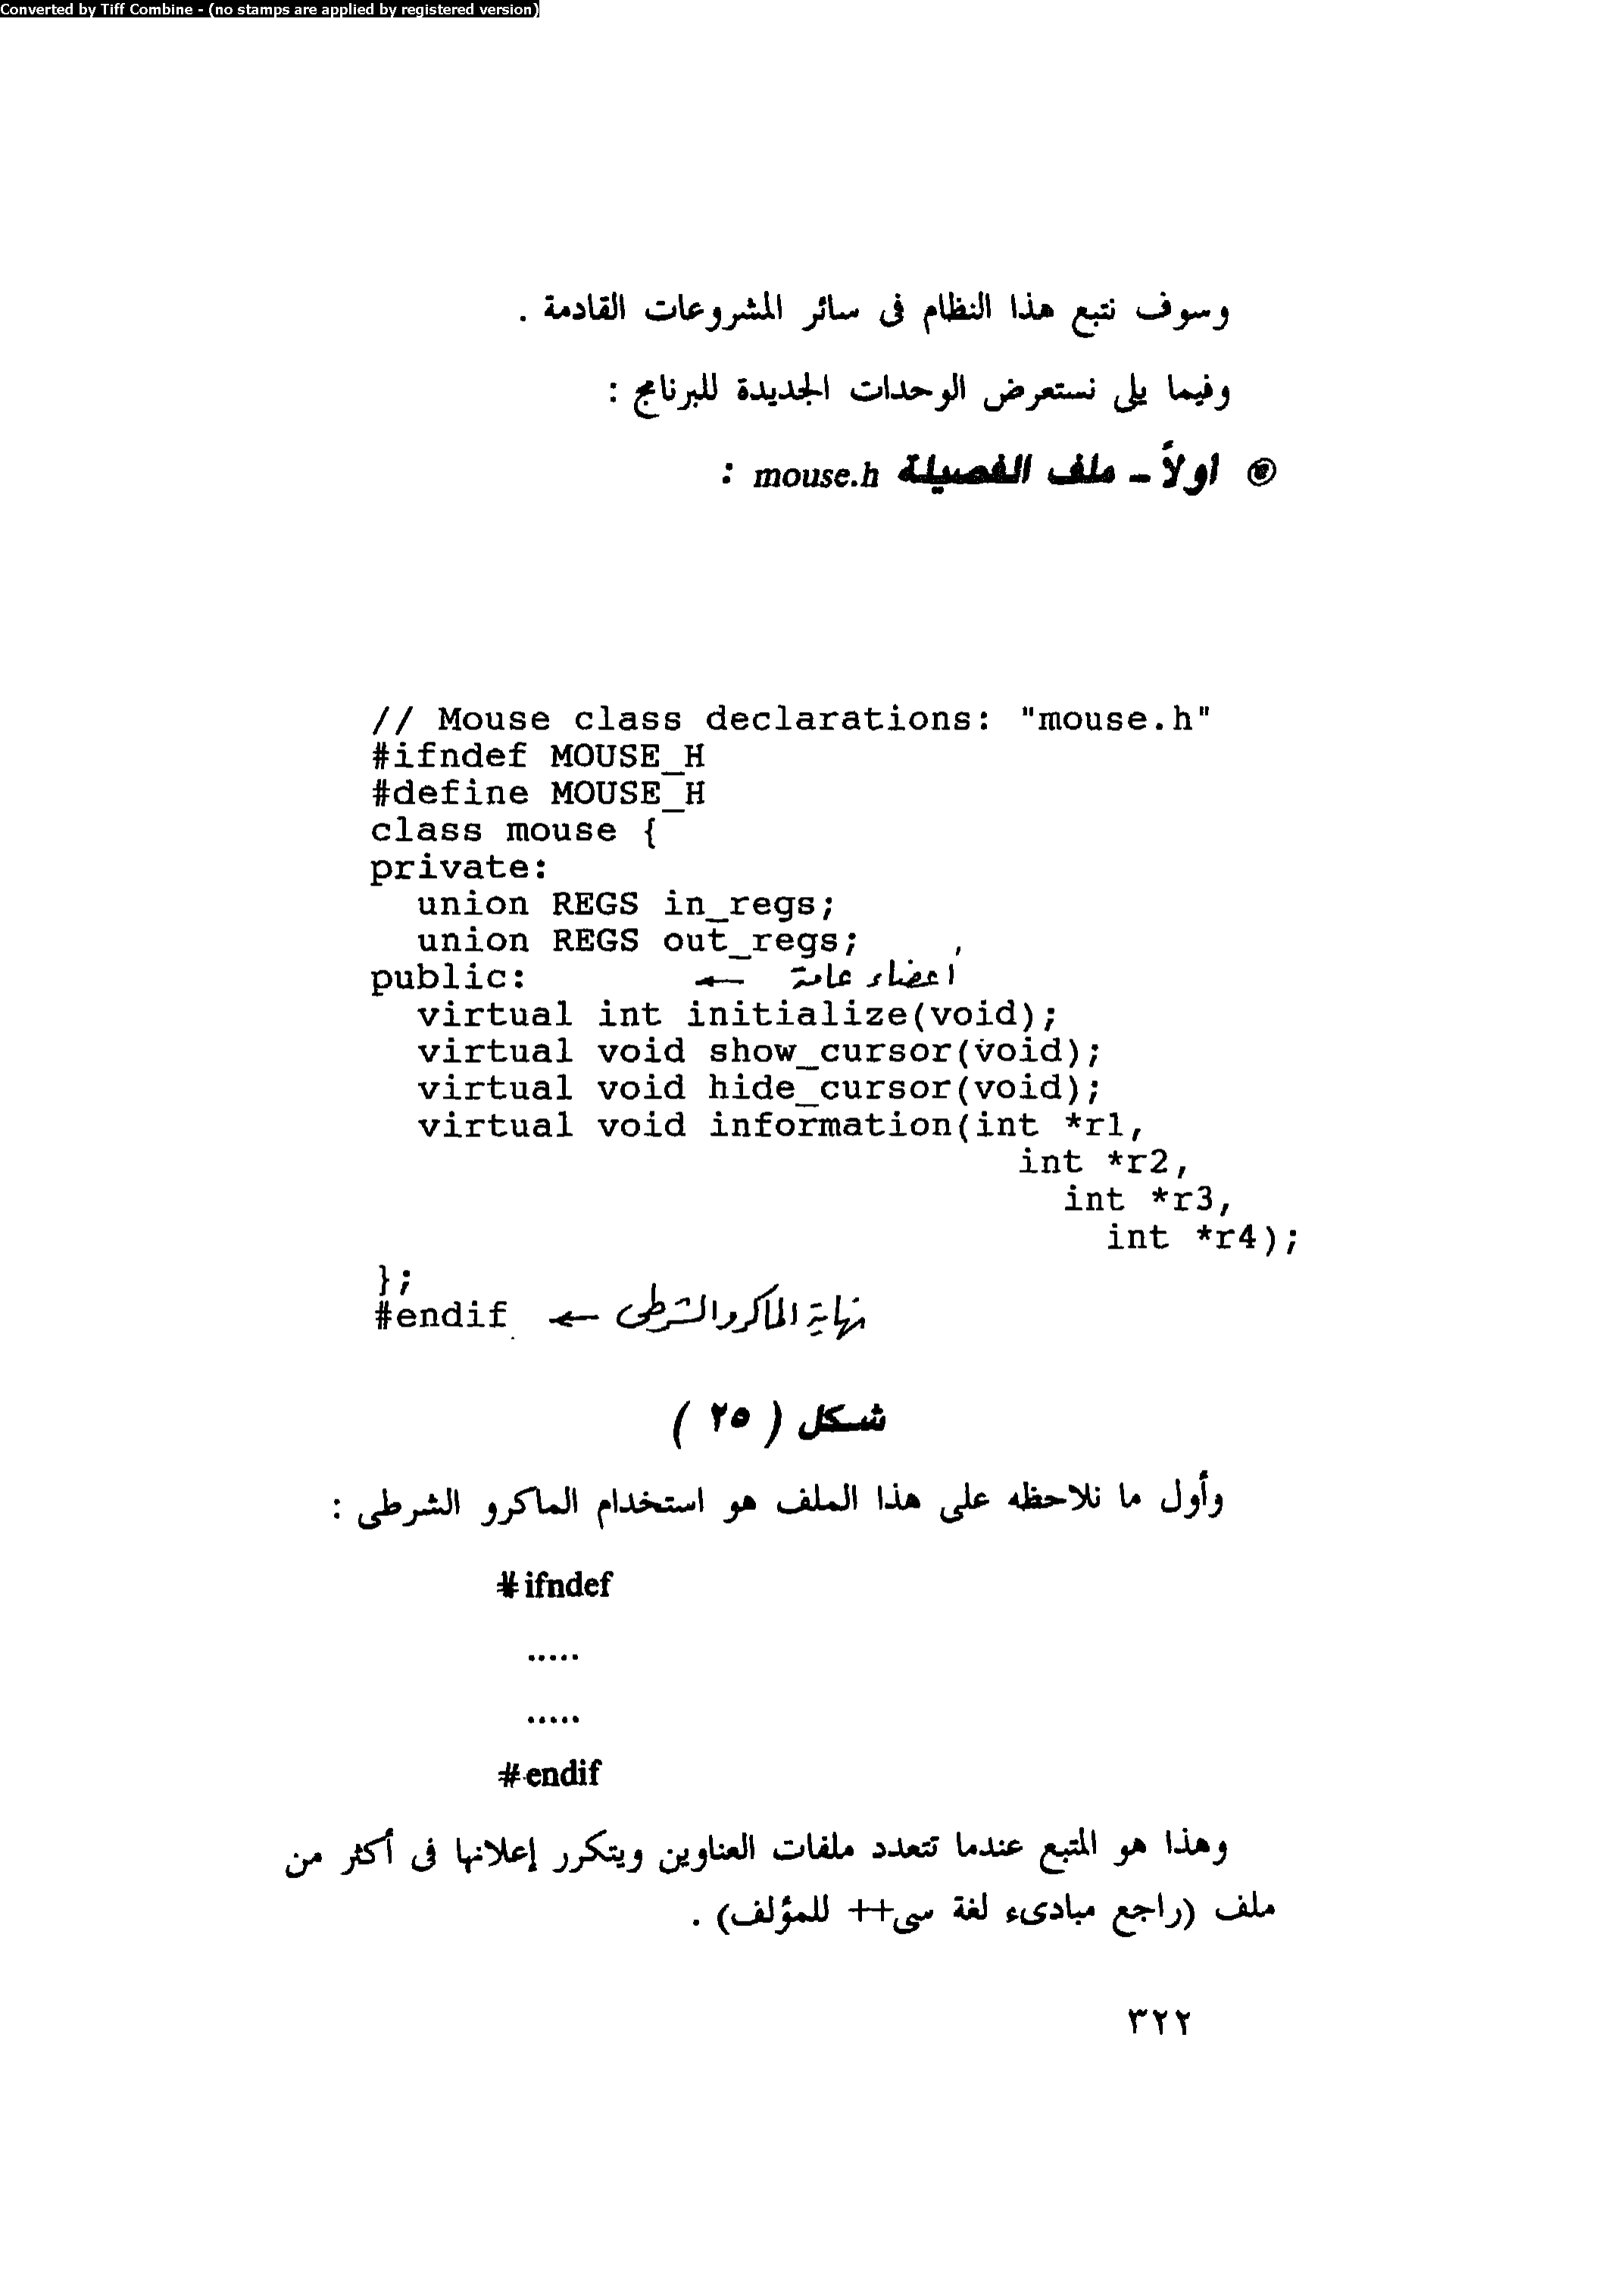 Converted by Tiff Combine - (no stamps are applied by registered version)
وسوف نتبع هذا النظام فى سائر المشروعات القادمة .
وفيما يلى نستعرض الوحدات الجديدة للبرنامج :
اولاً - ملف الفصيلة mouse.h :
// Mouse class declarations: "mouse.h"
#ifndef MOUSE_H
#define MOUSE_H
class mouse {
private:
union REGS in_regs;
union REGS out_regs;
public: ← أعضاء عامة
virtual int initialize(void);
virtual void show_cursor(void);
virtual void hide_cursor(void);
virtual void information(int *r1,
int *r2,
int *r3,
int *r4);
};
#endif ← نهاية الماكرو الشرطى
شكل ( ٢٥ )
وأول ما نلاحظه على هذا الملف هو استخدام الماكرو الشرطى :
#ifndef
.....
.....
#endif
وهذا هو المتبع عندما تتعدد ملفات العناوين ويتكرر إعلانها فى أكثر من
ملف (راجع مبادىء لغة سى++ للمؤلف) .
٣٢٢